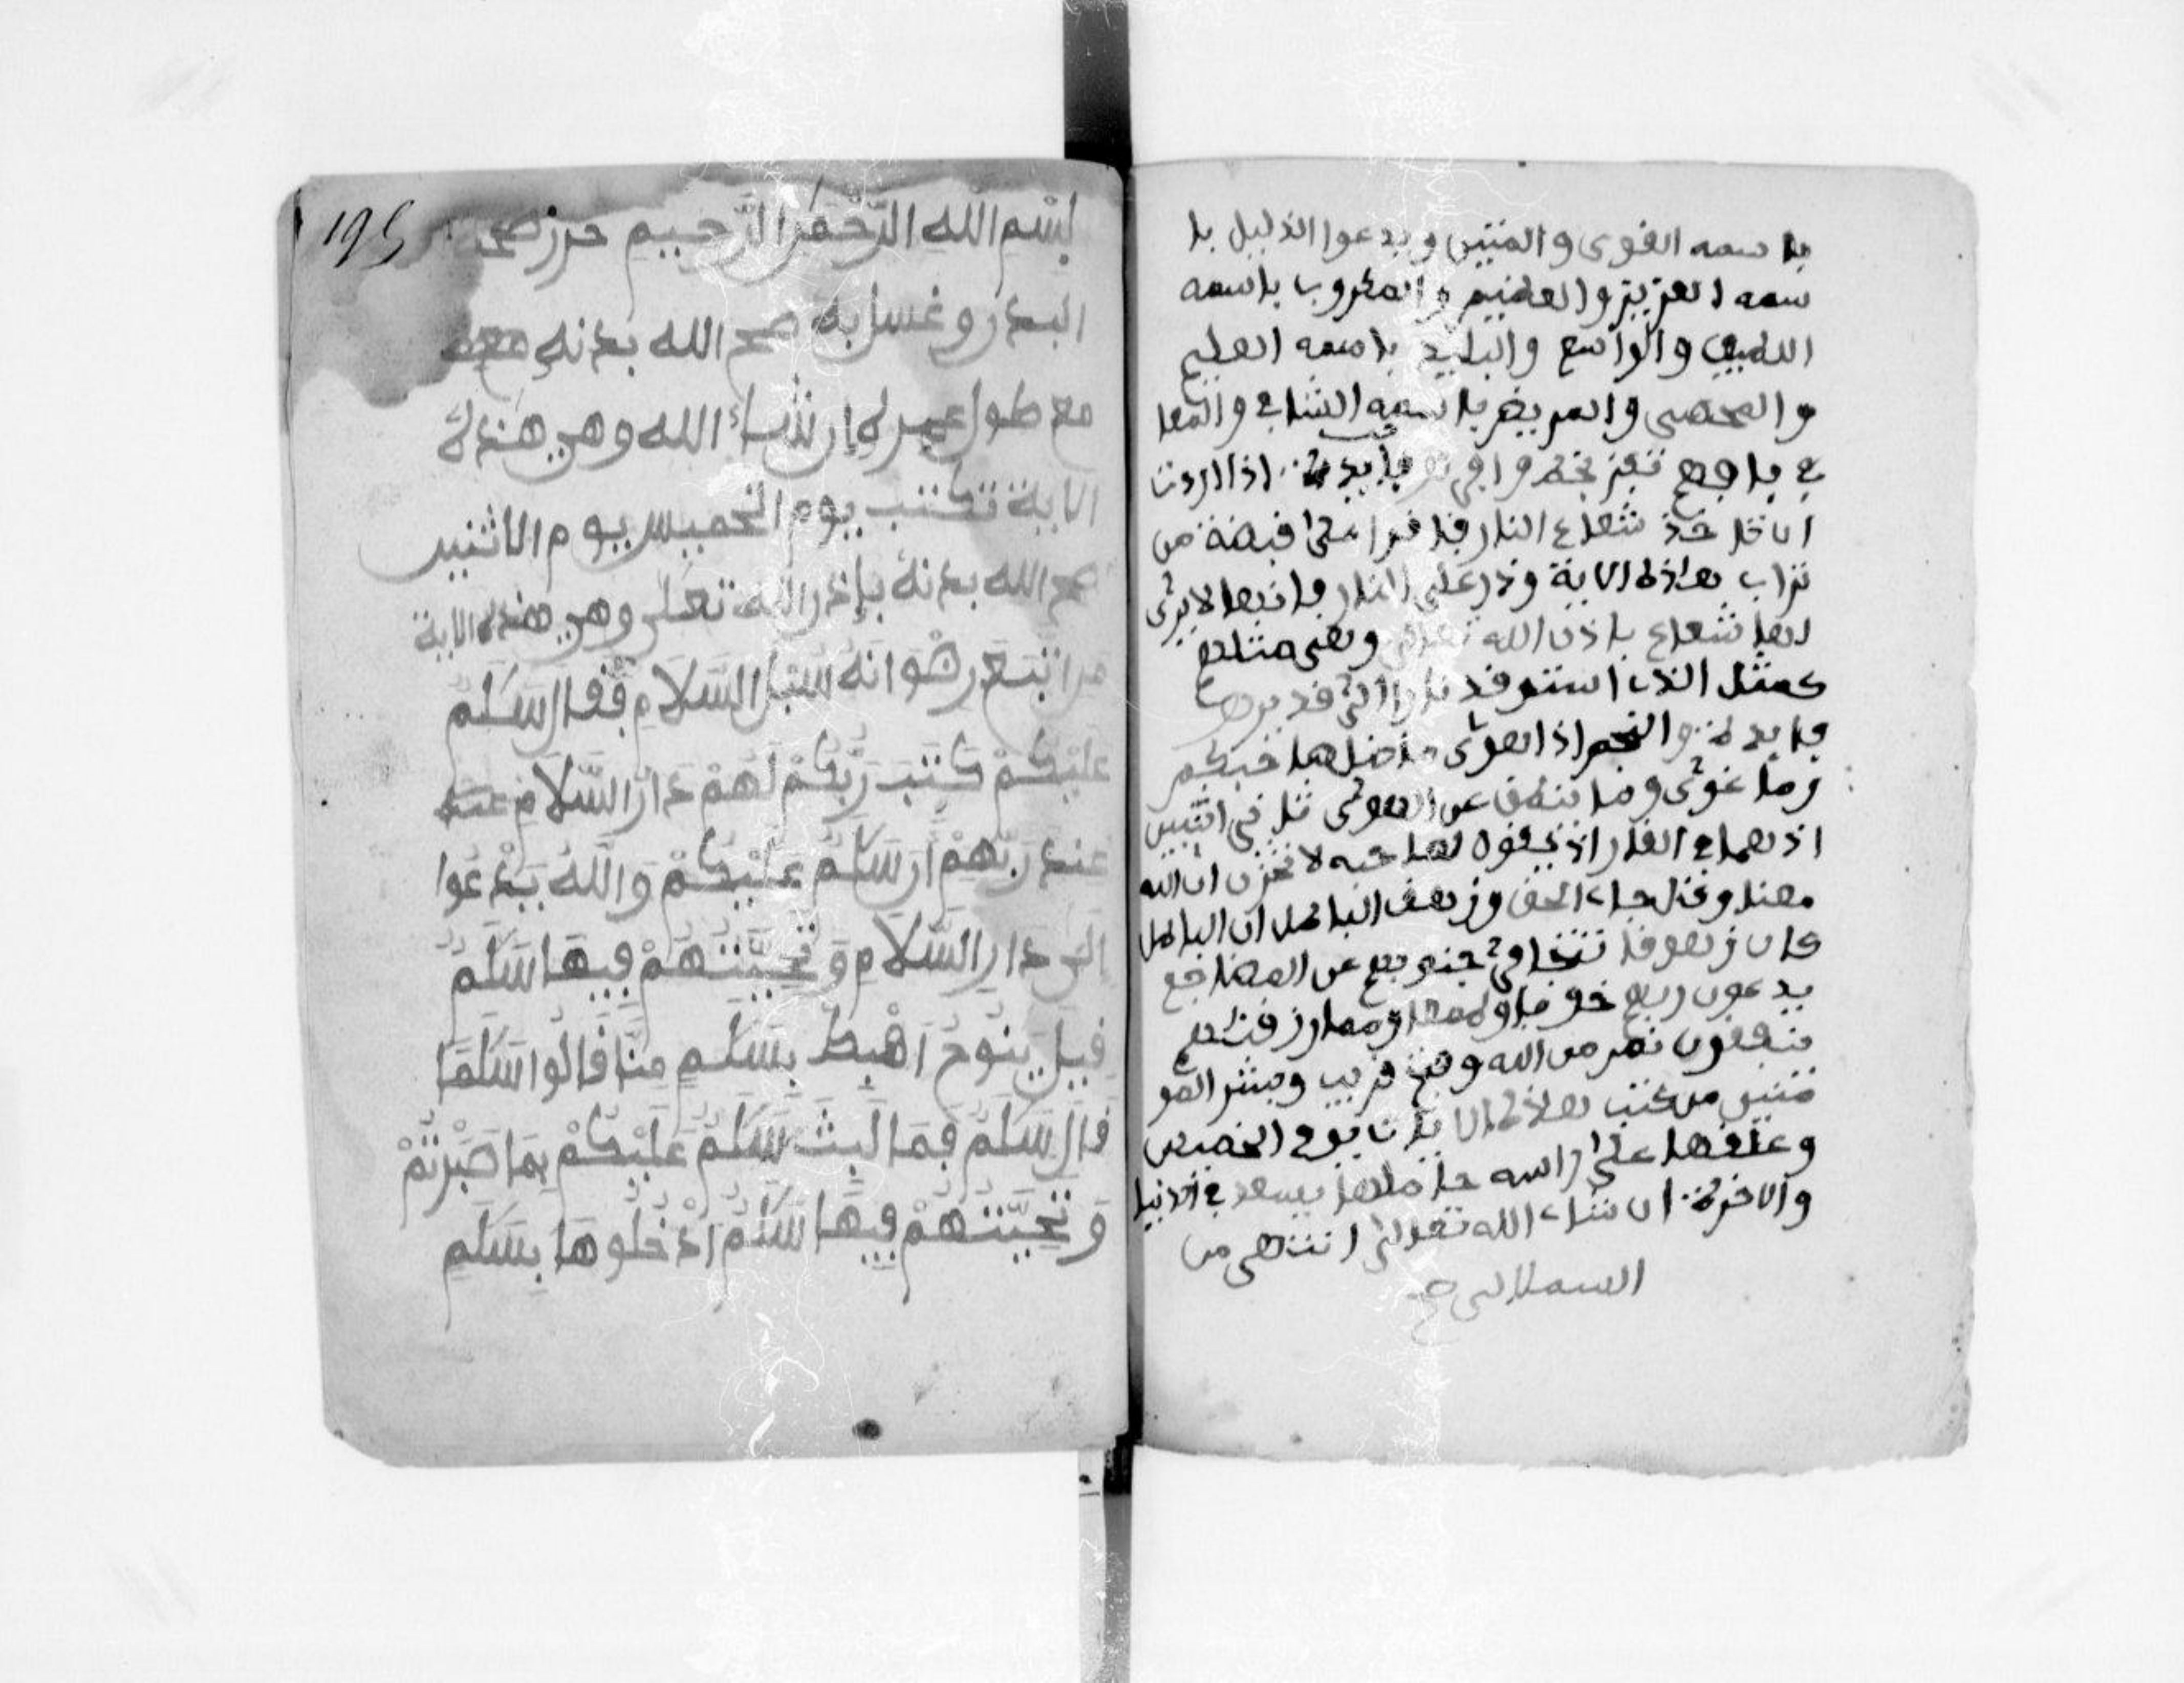 باسمه القوى والمتين ويدعوا الذليل با
سمه العزيز والعظيم والمكروب باسمه
اللطيف والواسع والبليد باسمه العليم
والمحصى والمريض باسمه الشافى والمعا
فى فافهم فائدة اذا اردت
ان تاخذ شعاع النار فاقرا على قبضة من
تراب هذه الاية وذر على النار فانها لا يرى
لها شعاع باذن الله تعالى وهى مثلهم
كمثل الذى استوقد نارا الى قد يرجع
فايدة والنجم اذا هوى ما ضل صاحبكم
وما غوى وما ينطق عن الهوى ثانى اثنين
اذ هما فى الغار اذ يقول لصاحبه لا تحزن ان الله
معنا وقل جاء الحق وزهق الباطل ان الباطل
كان زهوقا تتجافى جنوبهم عن المضاجع
يدعون ربهم خوفا وطمعا ومما رزقناهم
ينفقون نصر من الله وفتح قريب وبشر المو
منين من كتب هذه الايات يوم الخميس
وعلقها على راسه حاملها يسعد فى الدنيا
والاخرة ان شاء الله تعالى انتهى من
السملالى صح
195
بِسْمِ اللهِ الرَّحْمَنِ الرَّحِيمِ حرز صحة
البدن وغسل به صح الله بدنه معه
مع طول عمره إن شاء الله وهي هذه
الاية تكتب يوم الخميس يوم الاثنين
صح الله بدنه بإذن الله تعلى وهي هذه الاية
مَنِ اتَّبَعَ رِضْوَانَهُ سُبُلَ السَّلَامِ فَقُلْ سَلَمٌ
عَلَيْكُمْ كَتَبَ رَبُّكُمْ لَهُمْ دَارُ السَّلَامِ عند
عِندَ رَبِّهِمْ أَن سَلَمٌ عَلَيْكُمْ وَاللهُ يَدْعُوا
إِلَى دَارِ السَّلَامِ وَتَحِيَّتُهُمْ فِيهَا سَلَمٌ
قِيلَ يَنُوحُ اهْبِطْ بِسَلَمٍ مِنَّا قَالُوا سَلَمًا
قَالَ سَلَمٌ فَمَا لَبِثَ سَلَمٌ عَلَيْكُمْ بِمَا صَبَرْتُمْ
وَتَحِيَّتُهُمْ فِيهَا سَلَمٌ ادْخُلُوهَا بِسَلَمٍ